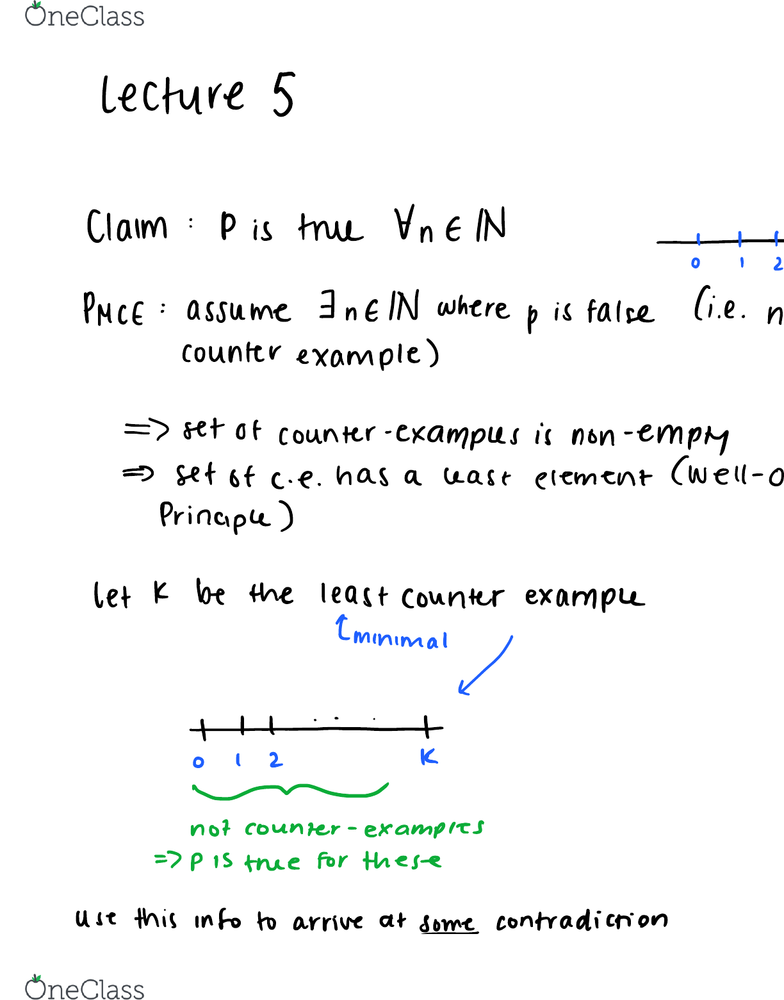 OneClass
Lecture 5
Claim : P is true ∀n ∈ ℕ
0 1 2
PMCE : assume ∃n ∈ ℕ where p is false (i.e. n
counter example)
=> set of counter-examples is non-empty
=> set of c.e. has a least element (Well-O
Principle)
let K be the least counter example
minimal
0 1 2 K
not counter-examples
=> P is true for these
use this info to arrive at some contradiction
OneClass